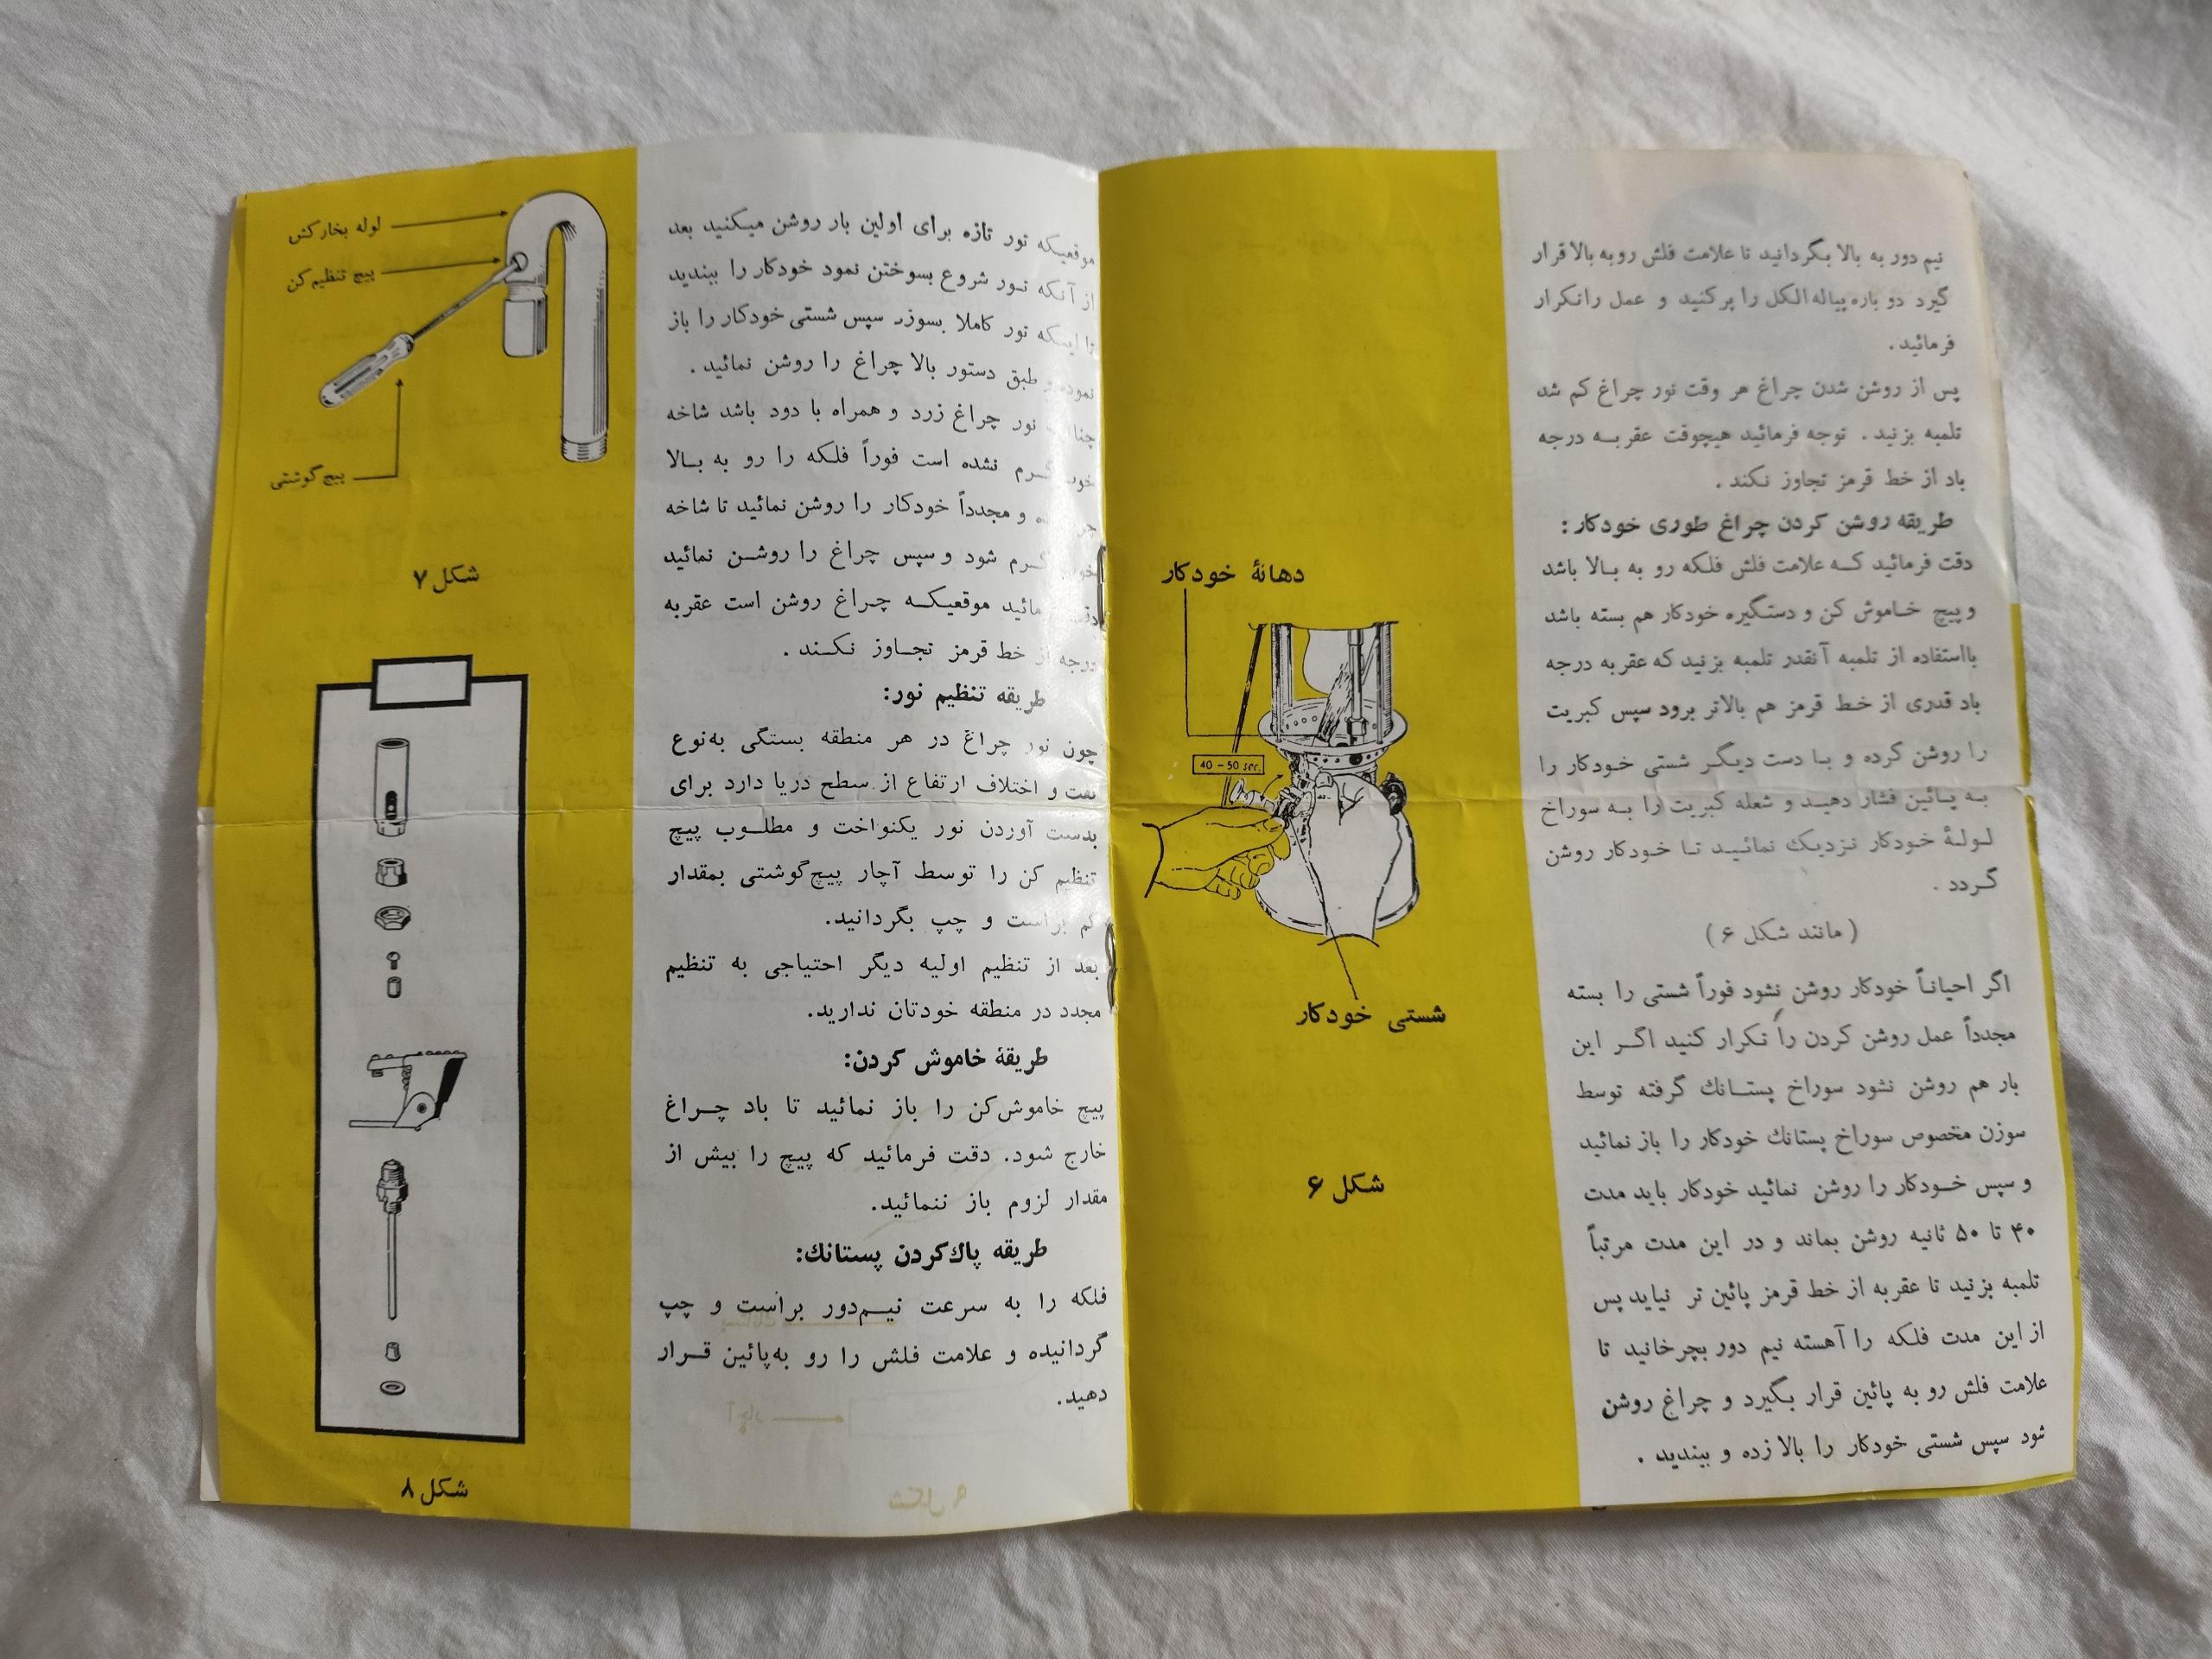 نیم دور به بالا بگردانید تا علامت فلش رو به بالا قرار
گیرد دو باره پیاله الکل را پرکنید و عمل را تکرار
فرمائید.
پس از روشن شدن چراغ هر وقت نور چراغ کم شد
تلمبه بزنید . توجه فرمائید هیچوقت عقربه درجه
باد از خط قرمز تجاوز نکند .
طریقه روشن کردن چراغ طوری خودکار :
دقت فرمائید که علامت فلش فلکه رو به بالا باشد
و پیچ خاموش کن و دستگیره خودکار هم بسته باشد
بااستفاده از تلمبه آنقدر تلمبه بزنید که عقربه درجه
باد قدری از خط قرمز هم بالاتر برود سپس کبریت
را روشن کرده و با دست دیگر شستی خودکار را
به پائین فشار دهید و شعله کبریت را به سوراخ
لولهٔ خودکار نزدیک نمائید تا خودکار روشن
گردد .
( مانند شکل ۶ )
اگر احیاناً خودکار روشن نشود فوراً شستی را بسته
مجدداً عمل روشن کردن را تکرار کنید اگر این
بار هم روشن نشود سوراخ پستانك گرفته توسط
سوزن مخصوص سوراخ پستانك خودکار را باز نمائید
و سپس خودکار را روشن نمائید خودکار باید مدت
۴۰ تا ۵۰ ثانیه روشن بماند و در این مدت مرتباً
تلمبه بزنید تا عقربه از خط قرمز پائین تر نیاید پس
از این مدت فلکه را آهسته نیم دور بچرخانید تا
علامت فلش رو به پائین قرار بگیرد و چراغ روشن
شود سپس شستی خودکار را بالا زده و ببندید .
دهانهٔ خودکار
40 – 50 sec.
شستی خودکار
شکل ۶
موقعیکه تور تازه برای اولین بار روشن میکنید بعد
از آنکه تور شروع بسوختن نمود خودکار را ببندید
تا اینکه تور کاملا بسوزد سپس شستی خودکار را باز
نموده و طبق دستور بالا چراغ را روشن نمائید .
نور چراغ زرد و همراه با دود باشد شاخه
نشده است فوراً فلکه را رو به بالا
و مجدداً خودکار را روشن نمائید تا شاخه
شود و سپس چراغ را روشن نمائید
موقعیکه چراغ روشن است عقربه
درجه از خط قرمز تجاوز نکند .
طریقه تنظیم نور:
چون نور چراغ در هر منطقه بستگی به‌نوع
نفت و اختلاف ارتفاع از سطح دریا دارد برای
بدست آوردن نور یکنواخت و مطلوب پیچ
تنظیم کن را توسط آچار پیچ‌گوشتی بمقدار
کم براست و چپ بگردانید.
بعد از تنظیم اولیه دیگر احتیاجی به تنظیم
مجدد در منطقه خودتان ندارید.
طریقهٔ خاموش کردن:
پیچ خاموش‌کن را باز نمائید تا باد چراغ
خارج شود. دقت فرمائید که پیچ را بیش از
مقدار لزوم باز ننمائید.
طریقه پاك‌کردن پستانك:
فلکه را به سرعت نیم‌دور براست و چپ
گردانیده و علامت فلش را رو به‌پائین قرار
دهید.
لوله بخارکش
پیچ تنظیم‌کن
پیچ‌گوشتی
شکل ۷
شکل ۸